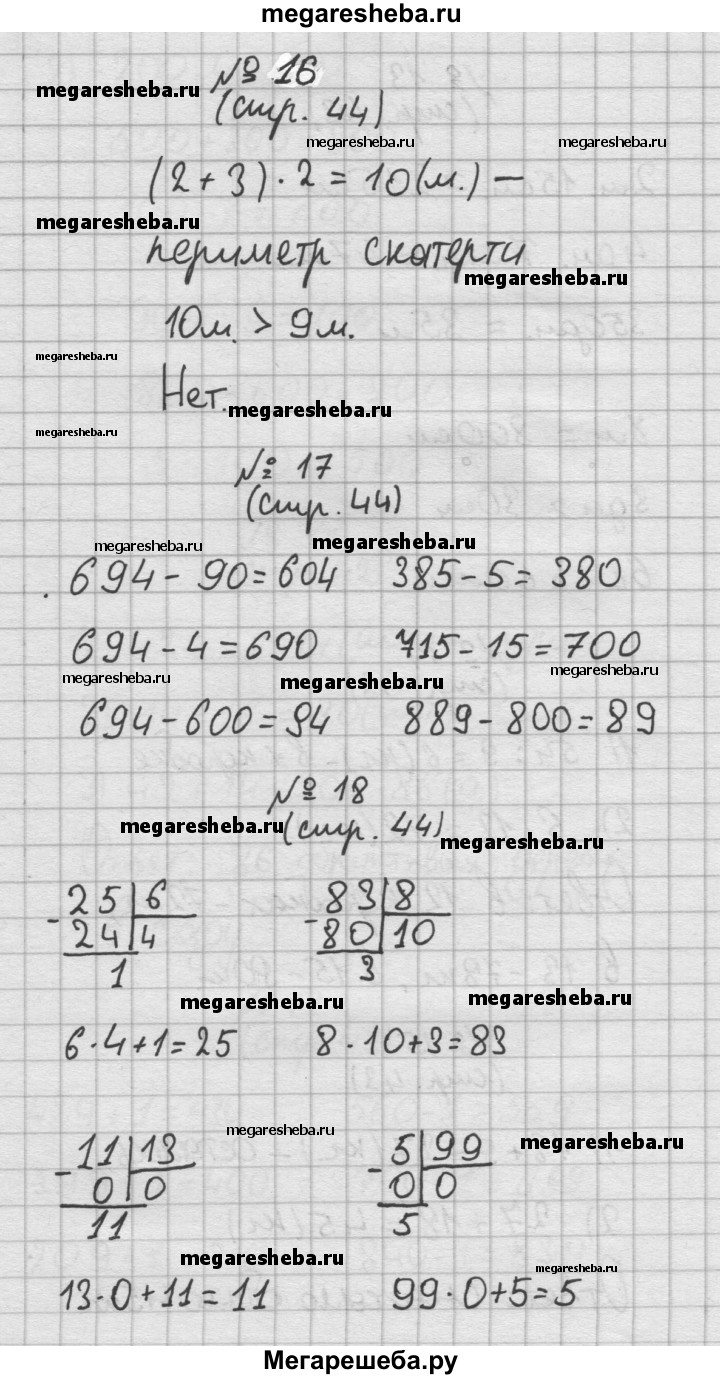 megaresheba.ru
№ 16
megaresheba.ru
(стр. 44)
megaresheba.ru megaresheba.ru
(2 + 3) · 2 = 10(м.) —
megaresheba.ru
периметр скатерти
megaresheba.ru
10м. > 9м.
megaresheba.ru
Нет.
megaresheba.ru
megaresheba.ru
№ 17
(стр. 44)
megaresheba.ru megaresheba.ru
694 - 90 = 604 385 - 5 = 380
694 - 4 = 690 715 - 15 = 700
megaresheba.ru megaresheba.ru megaresheba.ru
694 - 600 = 94 889 - 800 = 89
№ 18
megaresheba.ru (стр. 44) megaresheba.ru
- 25 | 6 - 83 | 8
24 | 4 80 | 10
1 3
megaresheba.ru megaresheba.ru
6 · 4 + 1 = 25 8 · 10 + 3 = 83
megaresheba.ru megaresheba.ru
- 11 | 13 - 5 | 99
0 | 0 0 | 0
11 5
megaresheba.ru megaresheba.ru
13 · 0 + 11 = 11 99 · 0 + 5 = 5
Мегарешеба.ру